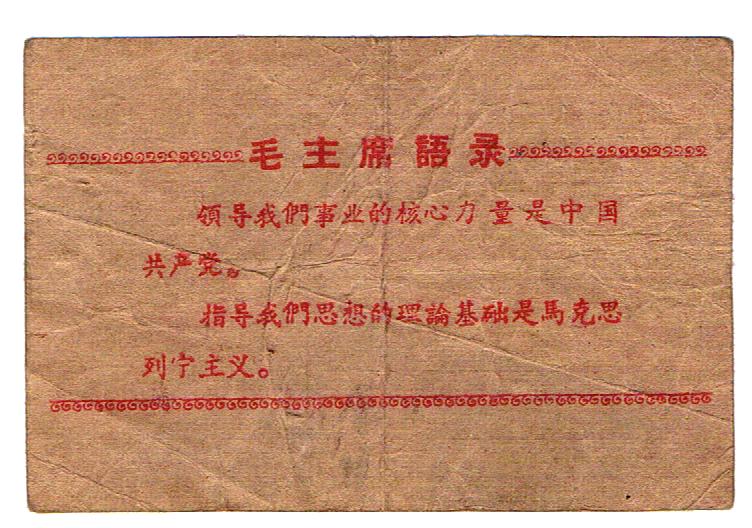 毛主席語录
領导我們事业的核心力量是中国
共产党。
指导我們思想的理論基础是馬克思
列宁主义。